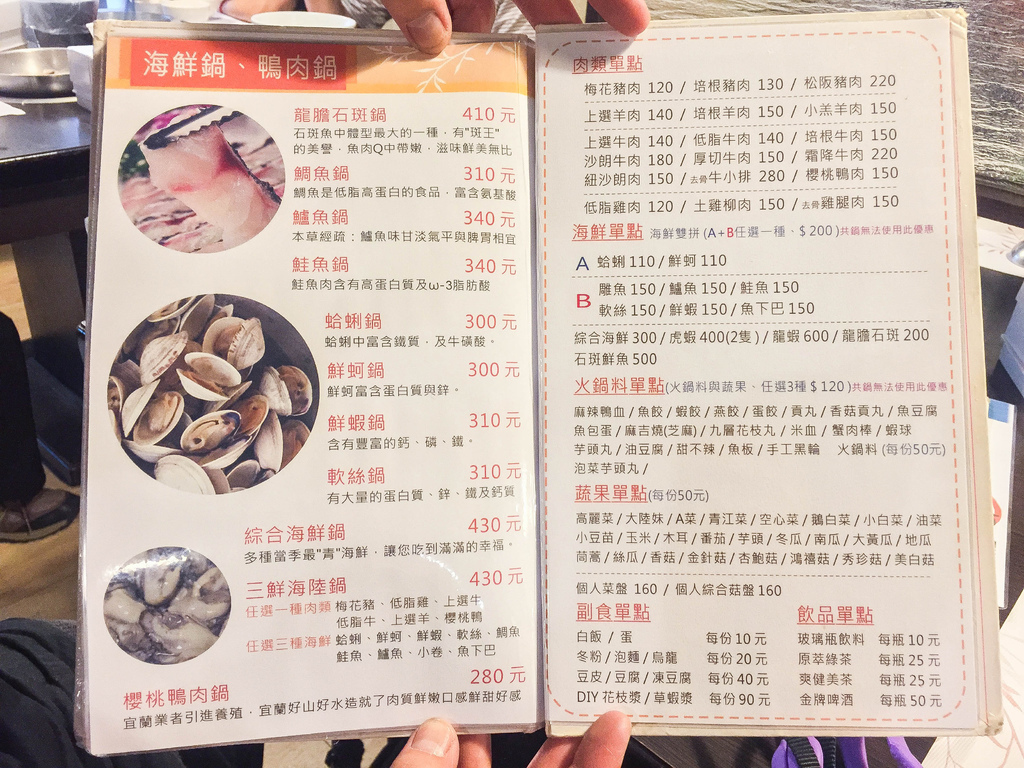 海鮮鍋、鴨肉鍋
龍膽石斑鍋 410元
石斑魚中體型最大的一種，有"斑王"
的美譽，魚肉Q中帶嫩，滋味鮮美無比
鯛魚鍋 310元
鯛魚是低脂高蛋白的食品，富含氨基酸
鱸魚鍋 340元
本草經疏：鱸魚味甘淡氣平與脾胃相宜
鮭魚鍋 340元
鮭魚肉含有高蛋白質及ω-3脂肪酸
蛤蜊鍋 300元
蛤蜊中富含鐵質，及牛磺酸。
鮮蚵鍋 300元
鮮蚵富含蛋白質與鋅。
鮮蝦鍋 310元
含有豐富的鈣、磷、鐵。
軟絲鍋 310元
有大量的蛋白質、鋅、鐵及鈣質
綜合海鮮鍋 430元
多種當季最"青"海鮮，讓您吃到滿滿的幸福。
三鮮海陸鍋 430元
任選一種肉類 梅花豬、低脂雞、上選牛
低脂牛、上選羊、櫻桃鴨
任選三種海鮮 蛤蜊、鮮蚵、鮮蝦、軟絲、鯛魚
鮭魚、鱸魚、小卷、魚下巴
櫻桃鴨肉鍋 280元
宜蘭業者引進養殖，宜蘭好山好水造就了肉質鮮嫩口感鮮甜好感
肉類單點
梅花豬肉 120 / 培根豬肉 130 / 松阪豬肉 220
上選羊肉 140 / 培根羊肉 150 / 小羔羊肉 150
上選牛肉 140 / 低脂牛肉 140 / 培根牛肉 150
沙朗牛肉 180 / 厚切牛肉 150 / 霜降牛肉 220
紐沙朗肉 150 / 去骨牛小排 280 / 櫻桃鴨肉 150
低脂雞肉 120 / 土雞柳肉 150 / 去骨雞腿肉 150
海鮮單點 海鮮雙拼(A+B任選一種、$200)共鍋無法使用此優惠
A 蛤蜊110/鮮蚵110
B 雕魚150/鱸魚150/鮭魚150
軟絲150/鮮蝦150/魚下巴150
綜合海鮮300/虎蝦400(2隻)/龍蝦600/龍膽石斑200
石斑鮮魚500
火鍋料單點(火鍋料與蔬果、任選3種$120)共鍋無法使用此優惠
麻辣鴨血/魚餃/蝦餃/燕餃/蛋餃/貢丸/香菇貢丸/魚豆腐
魚包蛋/麻吉燒(芝麻)/九層花枝丸/米血/蟹肉棒/蝦球
芋頭丸/油豆腐/甜不辣/魚板/手工黑輪 火鍋料(每份50元)
泡菜芋頭丸/
蔬果單點(每份50元)
高麗菜/大陸妹/A菜/青江菜/空心菜/鵝白菜/小白菜/油菜
小豆苗/玉米/木耳/番茄/芋頭/冬瓜/南瓜/大黃瓜/地瓜
茼蒿/絲瓜/香菇/金針菇/杏鮑菇/鴻禧菇/秀珍菇/美白菇
個人菜盤 160 / 個人綜合菇盤160
副食單點 飲品單點
白飯/蛋 每份10元 玻璃瓶飲料 每瓶10元
冬粉/泡麵/烏龍 每份20元 原萃綠茶 每瓶25元
豆皮/豆腐/凍豆腐 每份40元 爽健美茶 每瓶25元
DIY花枝漿/草蝦漿 每份90元 金牌啤酒 每瓶50元